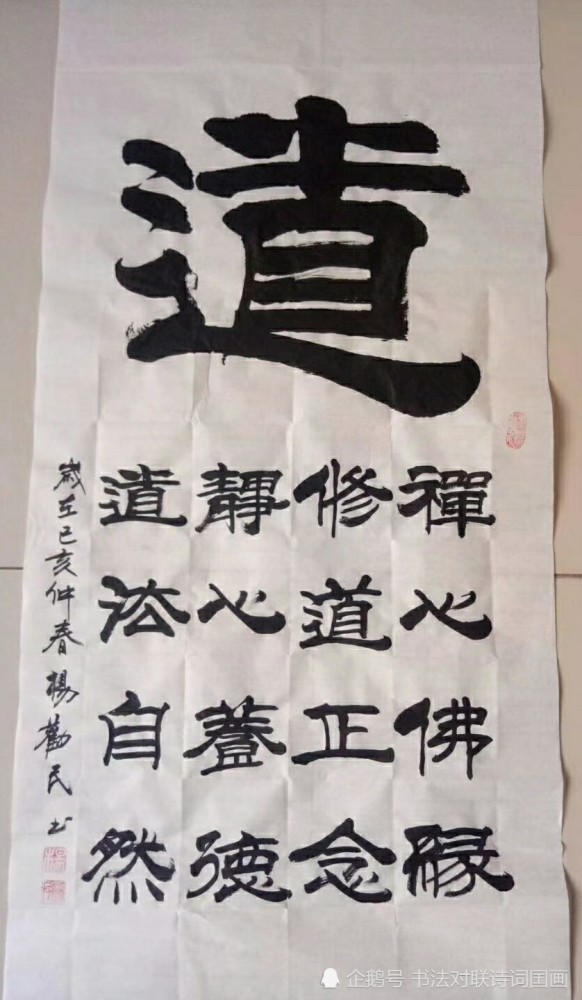 道
禪心佛緣
修道正念
靜心蓋德
道法自然
歲在己亥仲春楊勸民书
企鹅号 书法对联诗词国画